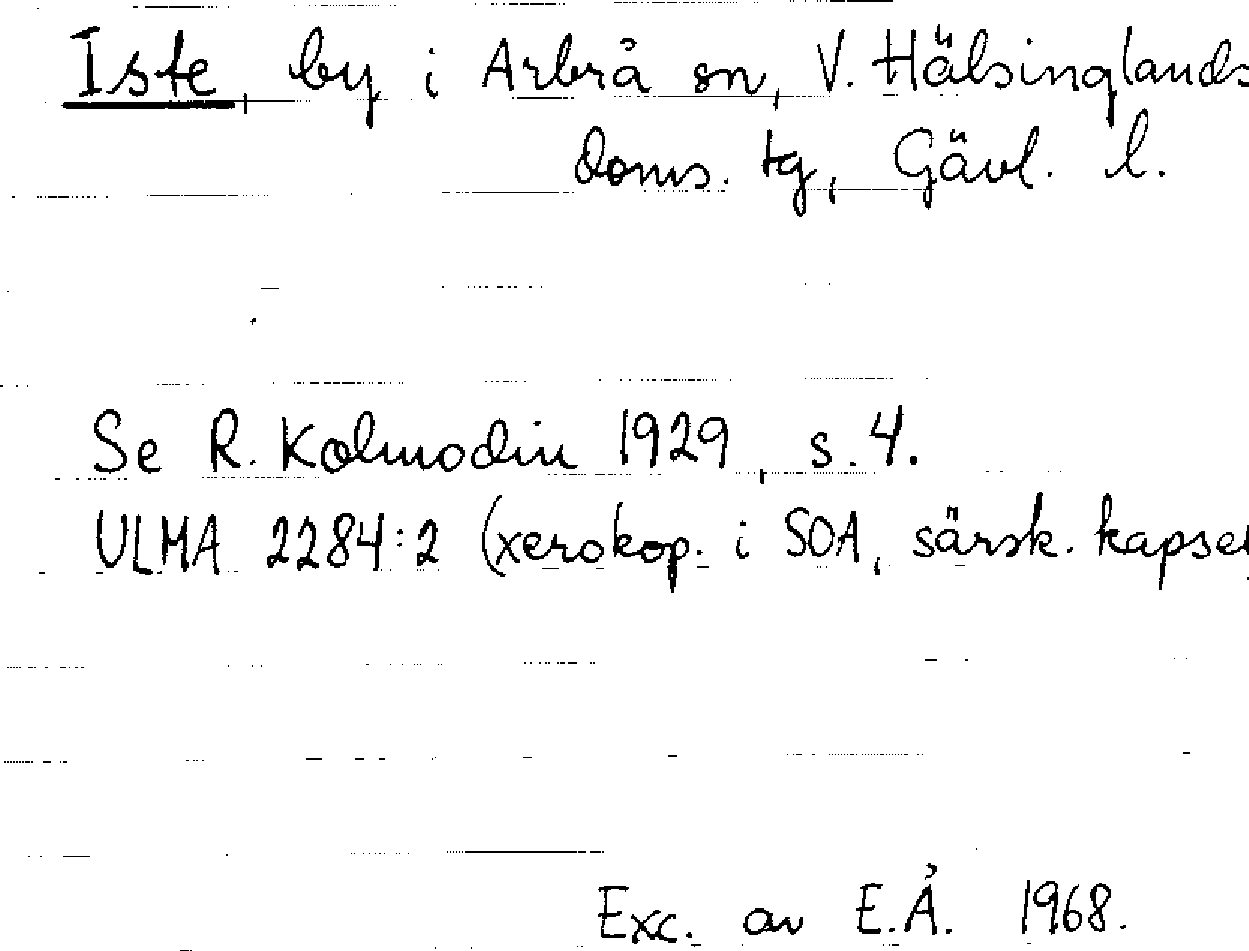 Iste, by i Arbrå sn, V. Hälsinglands
Doms. tg, Gävl. l.
Se R. Kolmodin 1929, s. 4.
ULMA 2284:2 (xerokop. i SOA, särsk. kapsel
Exc. av E.Å. 1968.